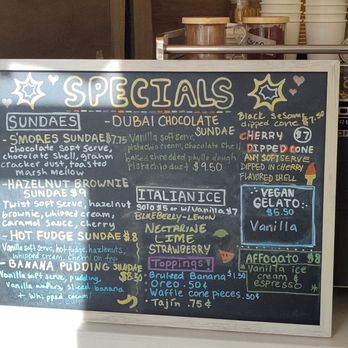 SPECIALS
SUNDAES
-S'MORES SUNDAE $7.75
chocolate soft serve,
chocolate shell, graham
cracker dust, toasted
marsh mellow
-HAZELNUT BROWNIE
SUNDAE $9
Twist soft serve, hazelnut
brownie, whipped cream,
caramel sauce, cherry
-HOT FUDGE SUNDAE $8
Vanilla soft serve, hot fudge, hazelnuts,
whipped cream, cherry on top
-BANANA PUDDING SUNDAE
$8.50
Vanilla soft serve, pudding,
Vanilla wafers, sliced banana
+ whipped cream!
-DUBAI CHOCOLATE
SUNDAE
Vanilla soft serve,
pistachio cream, chocolate shell,
shredded phyllo dough
pistachio dust $9.50
ITALIAN ICE
Solo $5 or w/Vanilla $7
BLUEBERRY-LEMON
NECTARINE
LIME
STRAWBERRY
Toppings
-Bruleed Banana $1.50
-Oreo .50¢
-Waffle cone pieces .50¢
-Tajin .75¢
Black Sesame $7.50
dipped cone
CHERRY $7
DIPPED CONE
ANY SOFT SERVE
DIPPED IN CHERRY
FLAVORED SHELL
VEGAN
GELATO:
$6.50
Vanilla
AFFOGATO $8
Vanilla ice
cream &
espresso